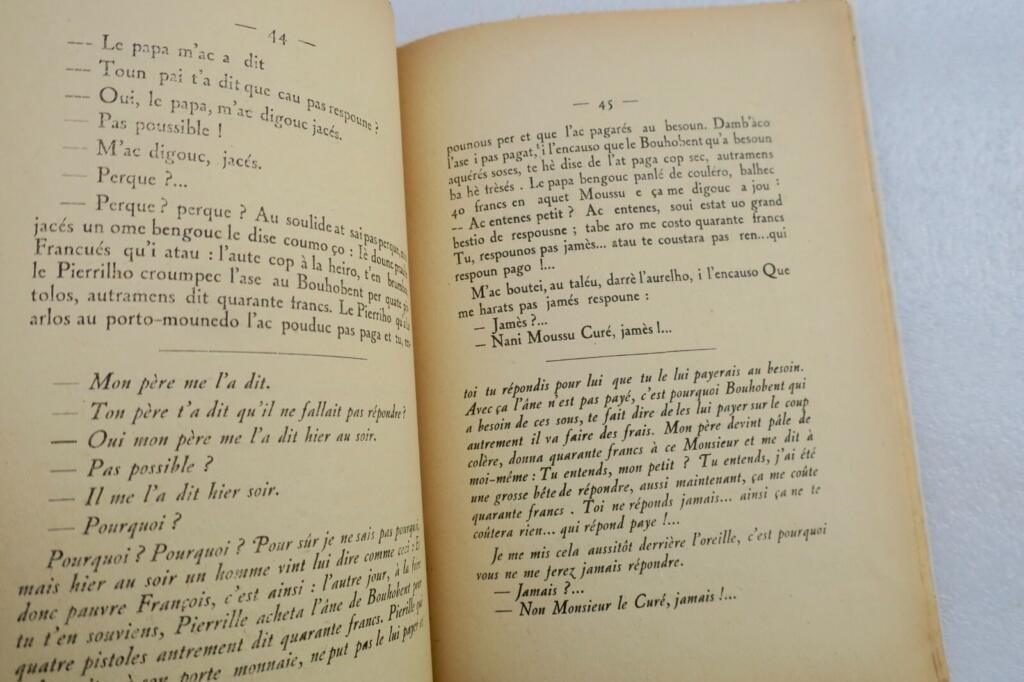 — 44 —
— Le papa m'ac a dit
— Toun pai t'a dit que cau pas respoune ?
— Oui, le papa, m'ac digouc jacés.
— Pas poussible !
— M'ac digouc, jacés.
— Perque ?...
— Perque ? perque ? Au soulide at sai pas perque,
jacés un ome bengouc le dise coumo ço : Iè doune
Francués qu'i atau : l'aute cop à la heiro, t'en
le Pierrilho croumpec l'ase au Bouhobent per quate
tolos, autramens dit quarante francs. Le Pierriho
arlos au porto-mounedo l'ac pouduc pas paga et tu,
— Mon père me l'a dit.
— Ton père t'a dit qu'il ne fallait pas répondre ?
— Oui mon père me l'a dit hier au soir.
— Pas possible ?
— Il me l'a dit hier soir.
— Pourquoi ?
Pourquoi ? Pourquoi ? Pour sûr je ne sais pas pourquoi,
mais hier au soir un homme vint lui dire comme ceci : Et
donc pauvre François, c'est ainsi : l'autre jour, à la foire
tu t'en souviens, Pierrille acheta l'âne de Bouhobent pour
quatre pistoles antrement dit quarante francs. Pierrille qui
à son porte monnaie, ne put pas le lui payer et
— 45 —
pounous per et que l'ac pagarés au besoun. Damb'àco
l'ase i pas pagat, i l'encauso que le Bouhobent qu'a besoun
aquérés soses, te hè dise de l'at paga cop sec, autramens
ba hè trèsés . Le papa bengouc panlé de couléro, balhec
40 francs en aquet Moussu e ça me digouc a jou :
— Ac entenes petit ? Ac entenes, soui estat uo grand
bestio de respousne ; tabe aro me costo quarante francs
Tu, respounos pas jamès... atau te coustara pas ren...qui
respoun pago !...
M'ac boutei, au taléu, darrè l'aurelho, i l'encauso Que
me harats pas jamés respoune :
— Jamès ?...
— Nani Moussu Curé, jamès !...
toi tu répondis pour lui que tu le lui payerais au besoin.
Avec ça l'âne n'est pas payé, c'est pourquoi Bouhobent qui
a besoin de ces sous, te fait dire de les lui payer sur le coup
autrement il va faire des frais. Mon père devint pâle de
colère, donna quarante francs à ce Monsieur et me dit à
moi-même : Tu entends, mon petit ? Tu entends, j'ai été
une grosse bête de répondre, aussi maintenant, ça me coûte
quarante francs . Toi ne réponds jamais... ainsi ça ne te
coûtera rien... qui répond paye !...
Je me mis cela aussitôt derrière l'oreille, c'est pourquoi
vous ne me ferez jamais répondre.
— Jamais ?...
— Non Monsieur le Curé, jamais !...